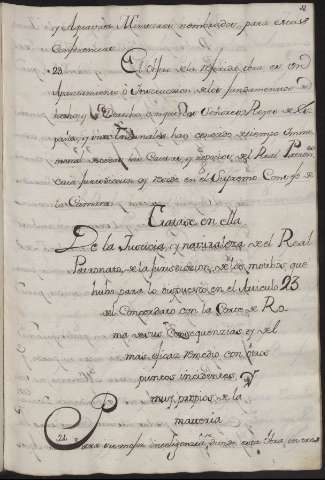 y Apuntados Ministros nombrados, para estas
Conferencias.
23 El de la referida obra es, un
Apuntamiento ò Instruccion de los fundamentos de
hecho, y Derecho, con que los Señores Reyes de Es-
paña, y sus Tribunales han conocido de tiempo imme-
morial de las Causas, y negocios del Real Patron.to
cuia jurisdiccion oy reside en el Supremo Consejo de
la Camara.
Tratase en ella
De la Justicia, y naturaleza de el Real
Patronato, de la jurisdiccion, de los motibos que
hubo para lo dispuesto en el Articulo 23
del Concordato con la Corte de Ro
ma de sus Consequenzias, y del
mas eficaz remedio con otros
puntos incidentes, y
muy propios de la
materia
24 Para su mejor inteligencia, divide esta obra en tres